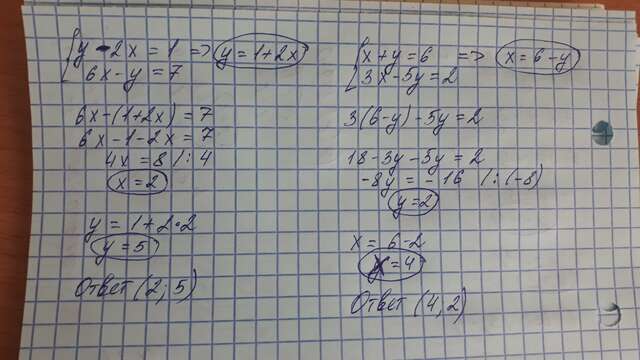 y - 2x = 1 => y = 1+2x
6x - y = 7
6x - (1+2x) = 7
6x - 1 - 2x = 7
4x = 8 /: 4
x = 2
y = 1 + 2·2
y = 5
Ответ (2; 5)
x + y = 6 => x = 6 - y
3x - 5y = 2
3(6-y) - 5y = 2
18 - 3y - 5y = 2
-8y = -16 /: (-8)
y = 2
x = 6 - 2
x = 4
Ответ (4, 2)